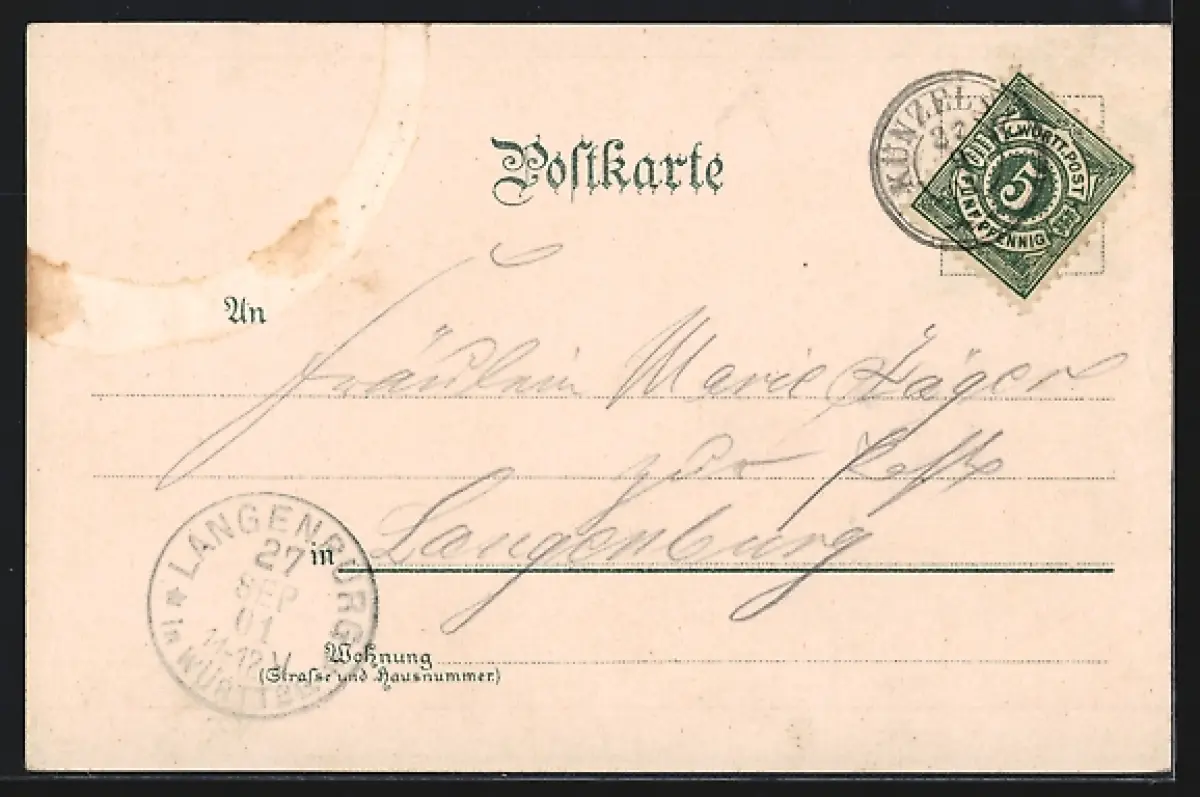 Postkarte
KÜNZELS
27
K. WÜRTT. POST
FÜNF PFENNIG
5
An
Fräulein Marie Jäger
zur Post
in Langenburg
LANGENBURG
27
SEP
01
11-12 V
in WÜRTTB
Wohnung
(Strasse und Hausnummer.)